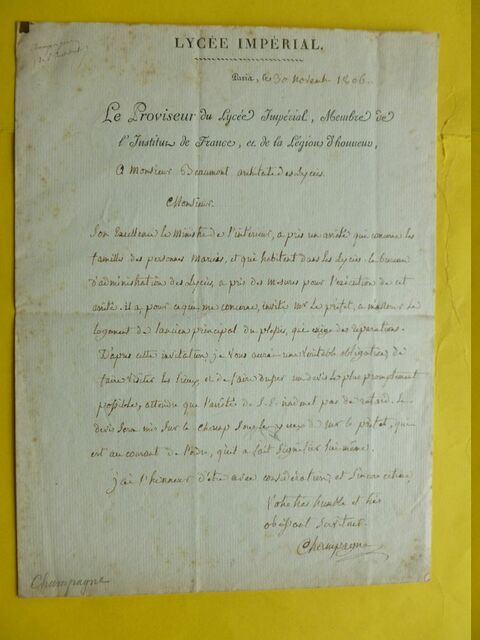 LYCÉE IMPÉRIAL.
Paris, le 30 novembre 1806.
Le Proviseur du Lycée Impérial, Membre de
l'Institut de France, et de la Légion d'honneur,
A Monsieur Beaumont architecte des Lycées.
Monsieur.
Son Excellence le Ministre de l'intérieur, a pris un arrêté qui concerne les
familles des personnes mariées, et qui habitent dans les Lycées. le bureau
d'administration des Lycées, a pris des mesures pour l'exécution de cet
arrêté. il a, pour ce qui me concerne, invité Mr le préfet, a
logement de l'ancien principal du plessis, qui exige des réparations.
D'après cette invitation, je vous aurai une véritable obligation, de
faire visiter les lieux et de faire dresser un devis le plus promptement
possible, attendu que l'arrêté de S. E. n'admet pas de retard. Le
devis sera mis sur le champ sous les yeux de Mr le préfet, qui
est au courant de l'ordre, qu'il a fait lui même.
j'ai l'honneur d'être avec considération, et sincere estime
Votre très humble et très
obéissant serviteur
Champagne
Champagne